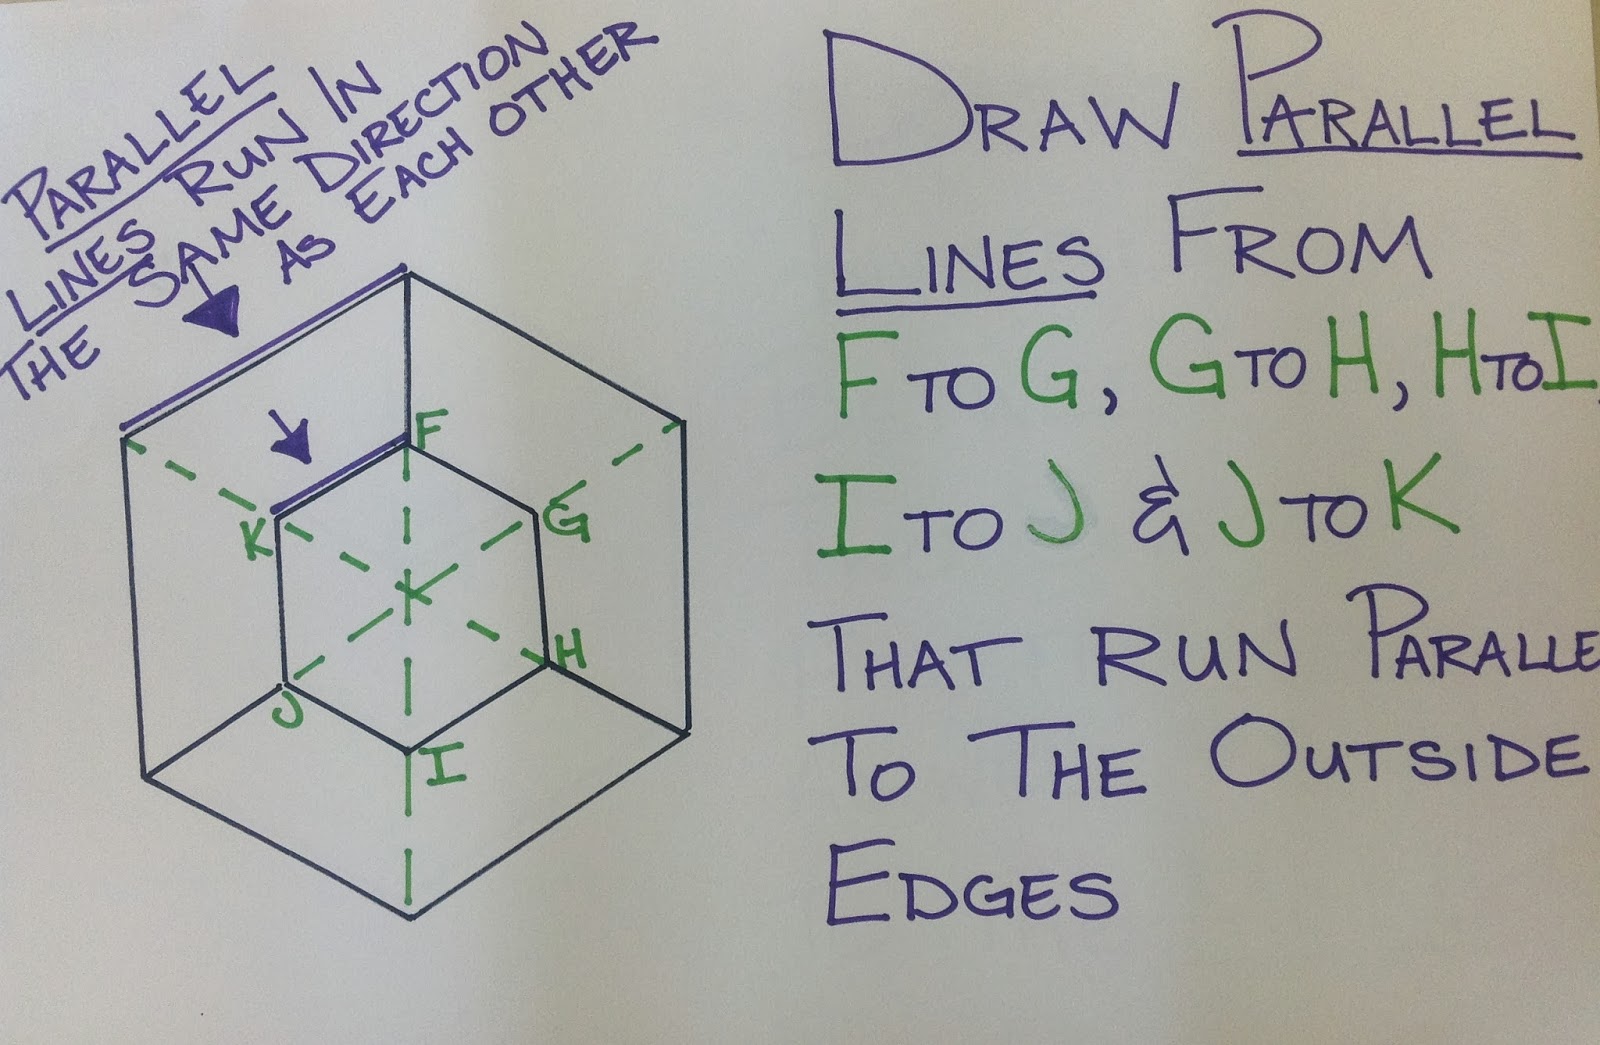 PARALLEL
LINES RUN IN
THE SAME DIRECTION
AS EACH OTHER
DRAW PARALLEL
LINES FROM
F TO G, G TO H, H TO I,
I TO J & J TO K
THAT RUN PARALLE
TO THE OUTSIDE
EDGES
F
G
K
H
J
I